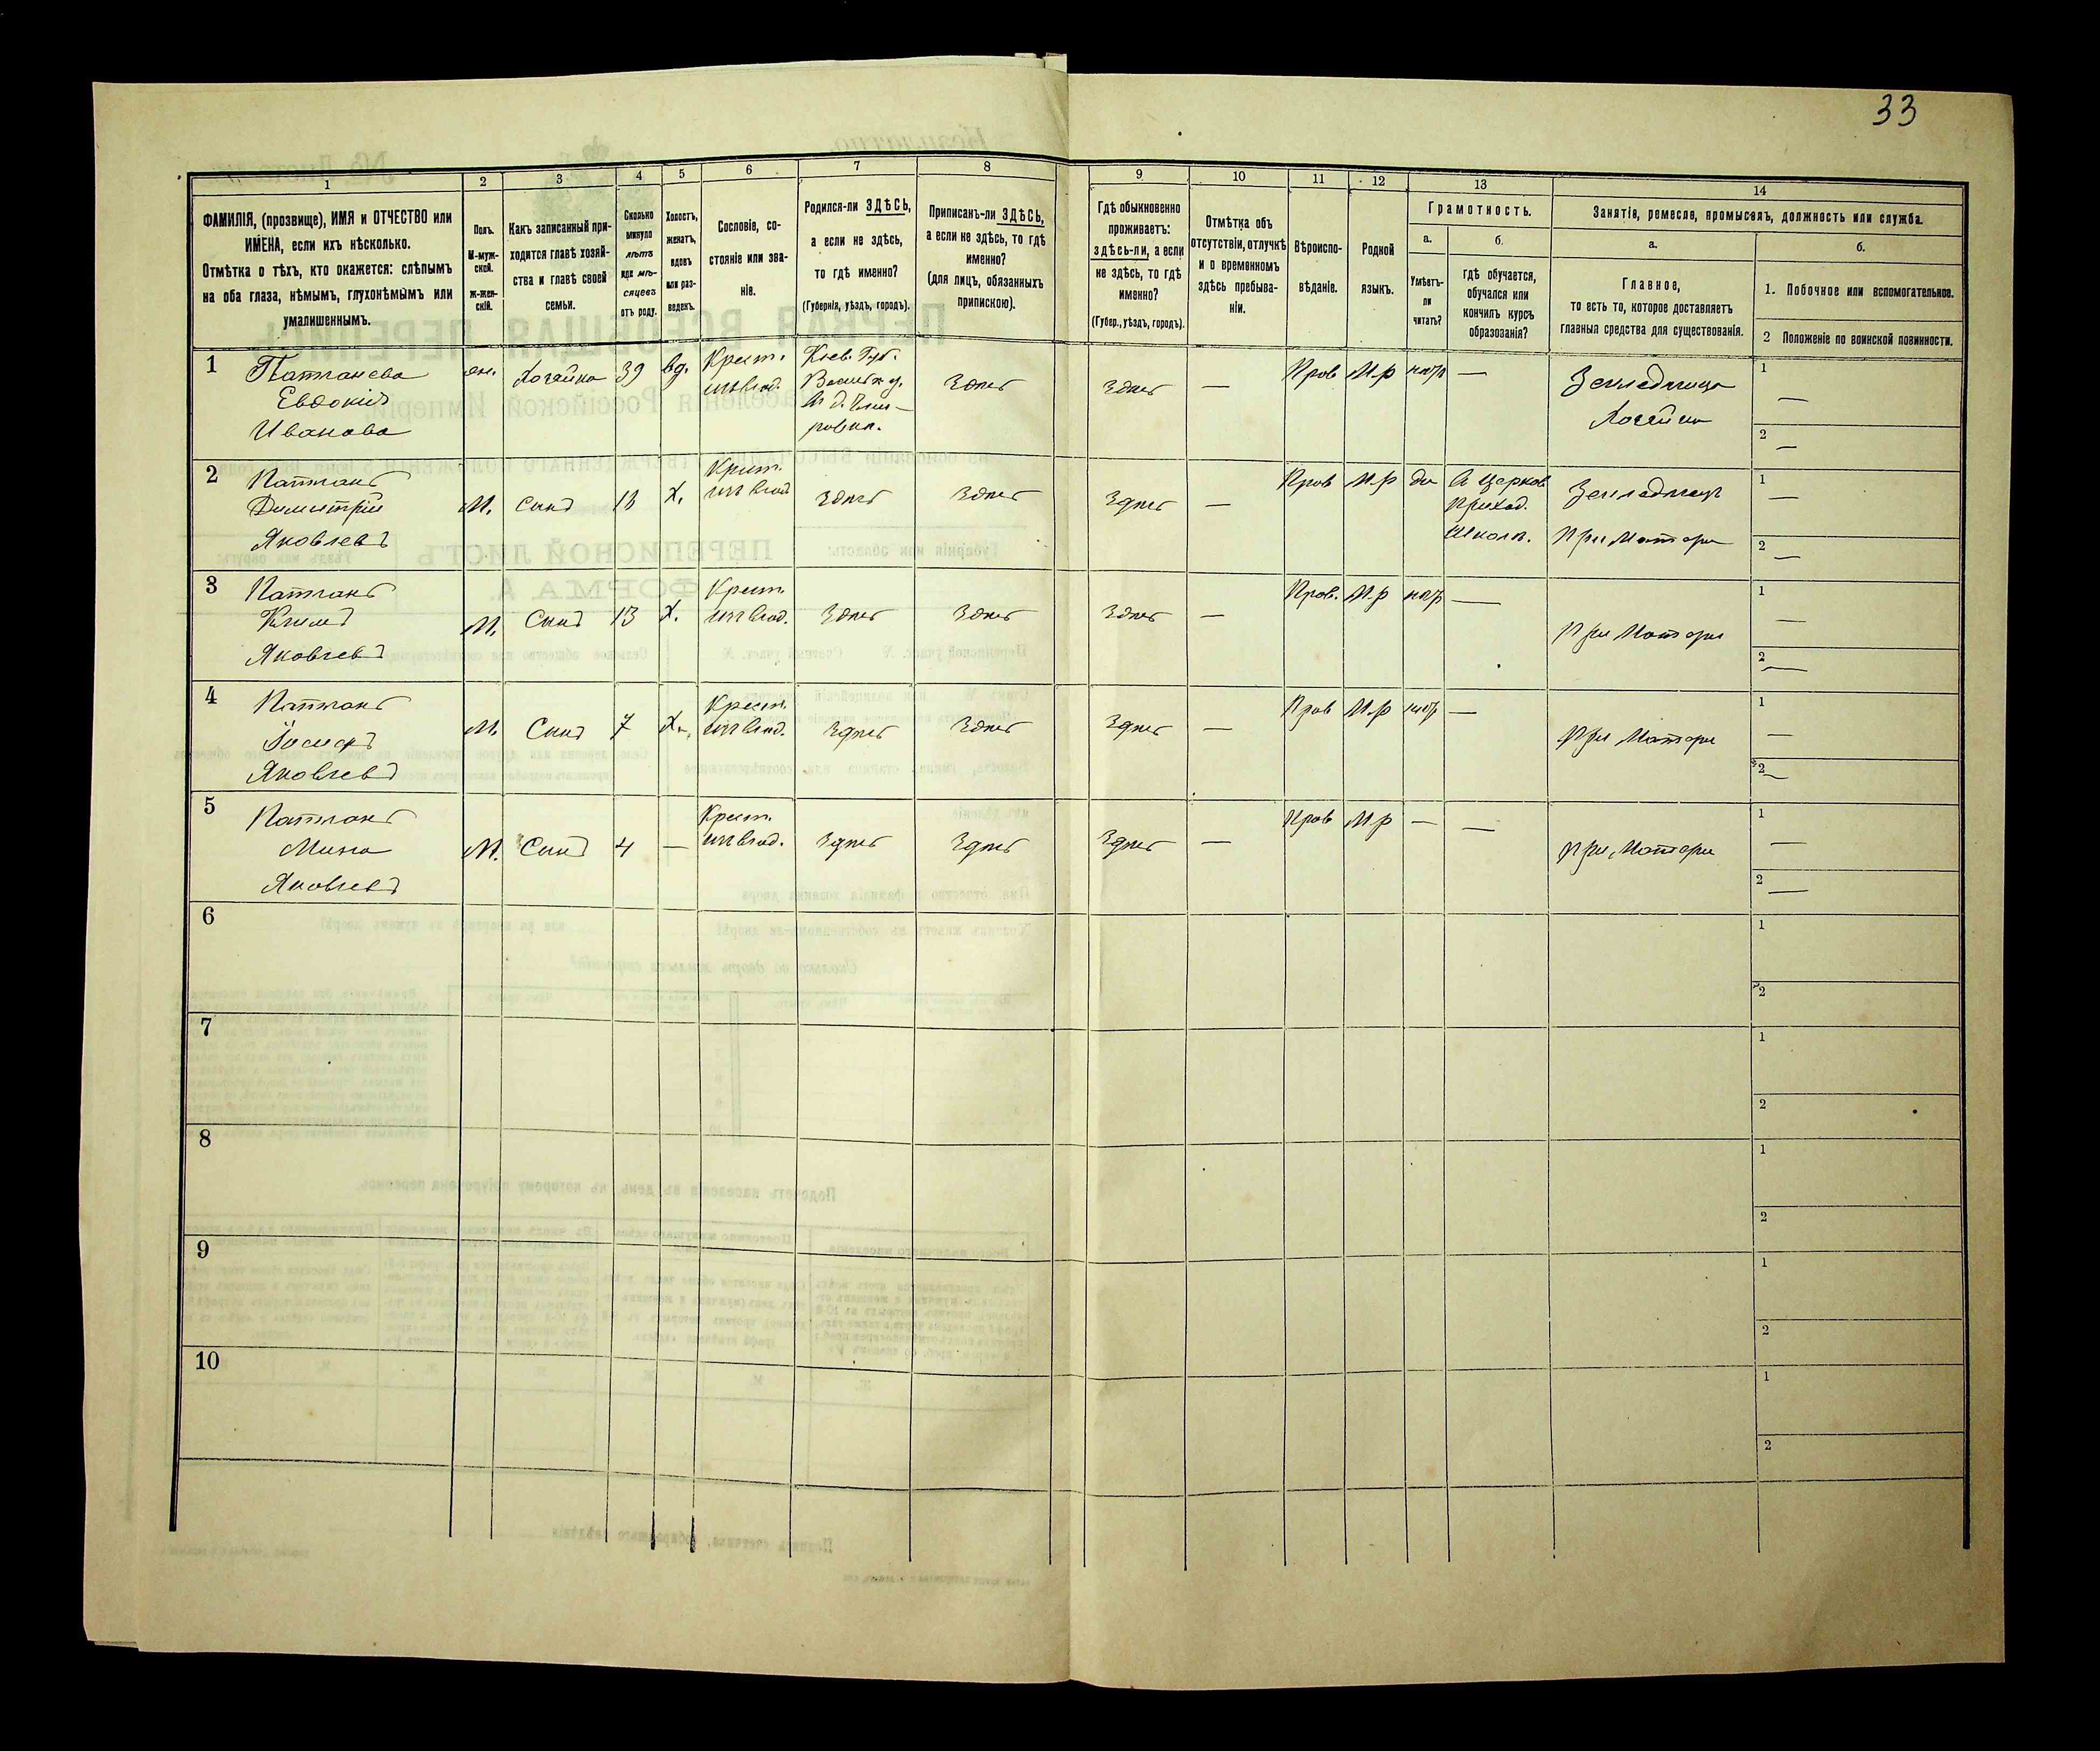 33
1
2
3
4
5
6
7
8
9
10
11
12
13
14
ФАМИЛІЯ, (прозвище), ИМЯ и ОТЧЕСТВО или
ИМЕНА, если ихъ нѣсколько.
Отмѣтка о тѣхъ, кто окажется: слѣпымъ
на оба глаза, нѣмымъ, глухонѣмымъ или
умалишеннымъ.
Полъ.
М-муж-
ской.
Ж-жен-
скій.
Какъ записанный при-
ходится главѣ хозяй-
ства и главѣ своей
семьи.
Сколько
минуло
лѣтъ
или мѣ-
сяцевъ
отъ роду.
Холостъ,
женатъ,
вдовъ
или раз-
веденъ.
Сословіе, со-
стояніе или зва-
ніе.
Родился-ли ЗДѢСЬ,
а если не здѣсь,
то гдѣ именно?
(Губернія, уѣздъ, городъ).
Приписанъ-ли ЗДѢСЬ,
а если не здѣсь, то гдѣ
именно?
(для лицъ, обязанныхъ
припискою).
Гдѣ обыкновенно
проживаетъ:
здѣсь-ли, а если
не здѣсь, то гдѣ
именно?
(Губер., уѣздъ, городъ).
Отмѣтка объ
отсутствіи, отлучкѣ
и о временномъ
здѣсь пребыва-
ніи.
Вѣроиспо-
вѣданіе.
Родной
языкъ.
Грамотность.
а.
Умѣетъ-
ли
читать?
б.
гдѣ обучается,
обучался или
кончилъ курсъ
образованія?
Занятіе, ремесло, промыселъ, должность или служба.
а.
Главное,
то есть то, которое доставляетъ
главныя средства для существованія.
б.
1. Побочное или вспомогательное.
2 Положеніе по воинской повинности.
1
Евдокія
Иванова
жн.
Хозяйка
39
вд.
Крест.
Кіев. Губ.
Здѣсь
Здѣсь
—
Прав
М-р
нѣтъ
—
Хозяйка
1
—
2
—
2
Димитрій
Яковлевъ
М.
Сынъ
18
Х.
Крест.
Здѣсь
Здѣсь
Здѣсь
—
Прав
М-р
да
В Церков
Приход.
Школѣ.
При Матери
1
—
2
—
3
Климъ
Яковлевъ
М.
Сынъ
13
Х.
Крест.
Здѣсь
Здѣсь
Здѣсь
—
Прав.
М-р
нѣтъ
—
При Матери
1
—
2
—
4
Іосифъ
Яковлевъ
М.
Сынъ
7
Х.
Крест.
Здѣсь
Здѣсь
Здѣсь
—
Прав
М-р
нѣтъ
—
При Матери
1
—
2
—
5
Мина
Яковлевъ
М.
Сынъ
4
—
Крест.
Здѣсь
Здѣсь
Здѣсь
—
Прав
М-р
—
—
При Матери
1
—
2
—
6
1
2
7
1
2
8
1
2
9
1
2
10
1
2